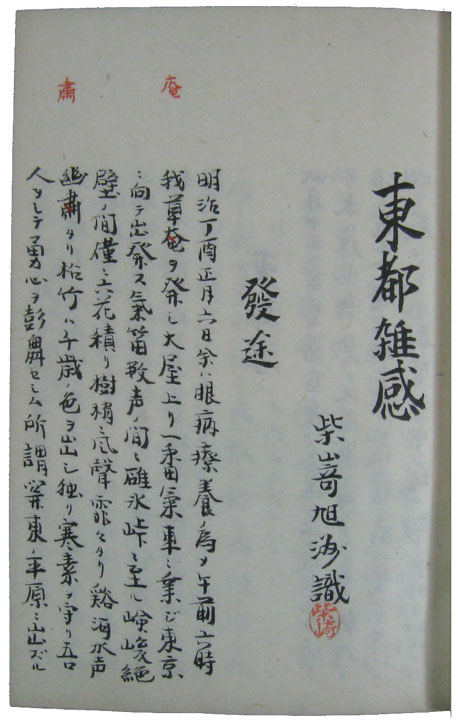 東都雑感
柴嵜旭 識
柴崎
發途
庵
肅
明治丁酉正月六日余ハ眼病療養ノ為メ午前六時
我草奄ヲ発シ大屋上リ一番氣車ニ乗ジ東京
ニ向テ出発ス氣笛数声ノ間ニ碓氷峠ニ至ル嶮峻絶
壁ノ間僅ニ六花積リ樹梢ニ風聲霏々タリ谿河水声
幽肅タリ松竹ハ千歳ノ色ヲ出シ独リ寒素ヲ守リ吾
人ヲシテ勇心ヲ彭舞セシム所謂関東ノ平原ニ出ズル